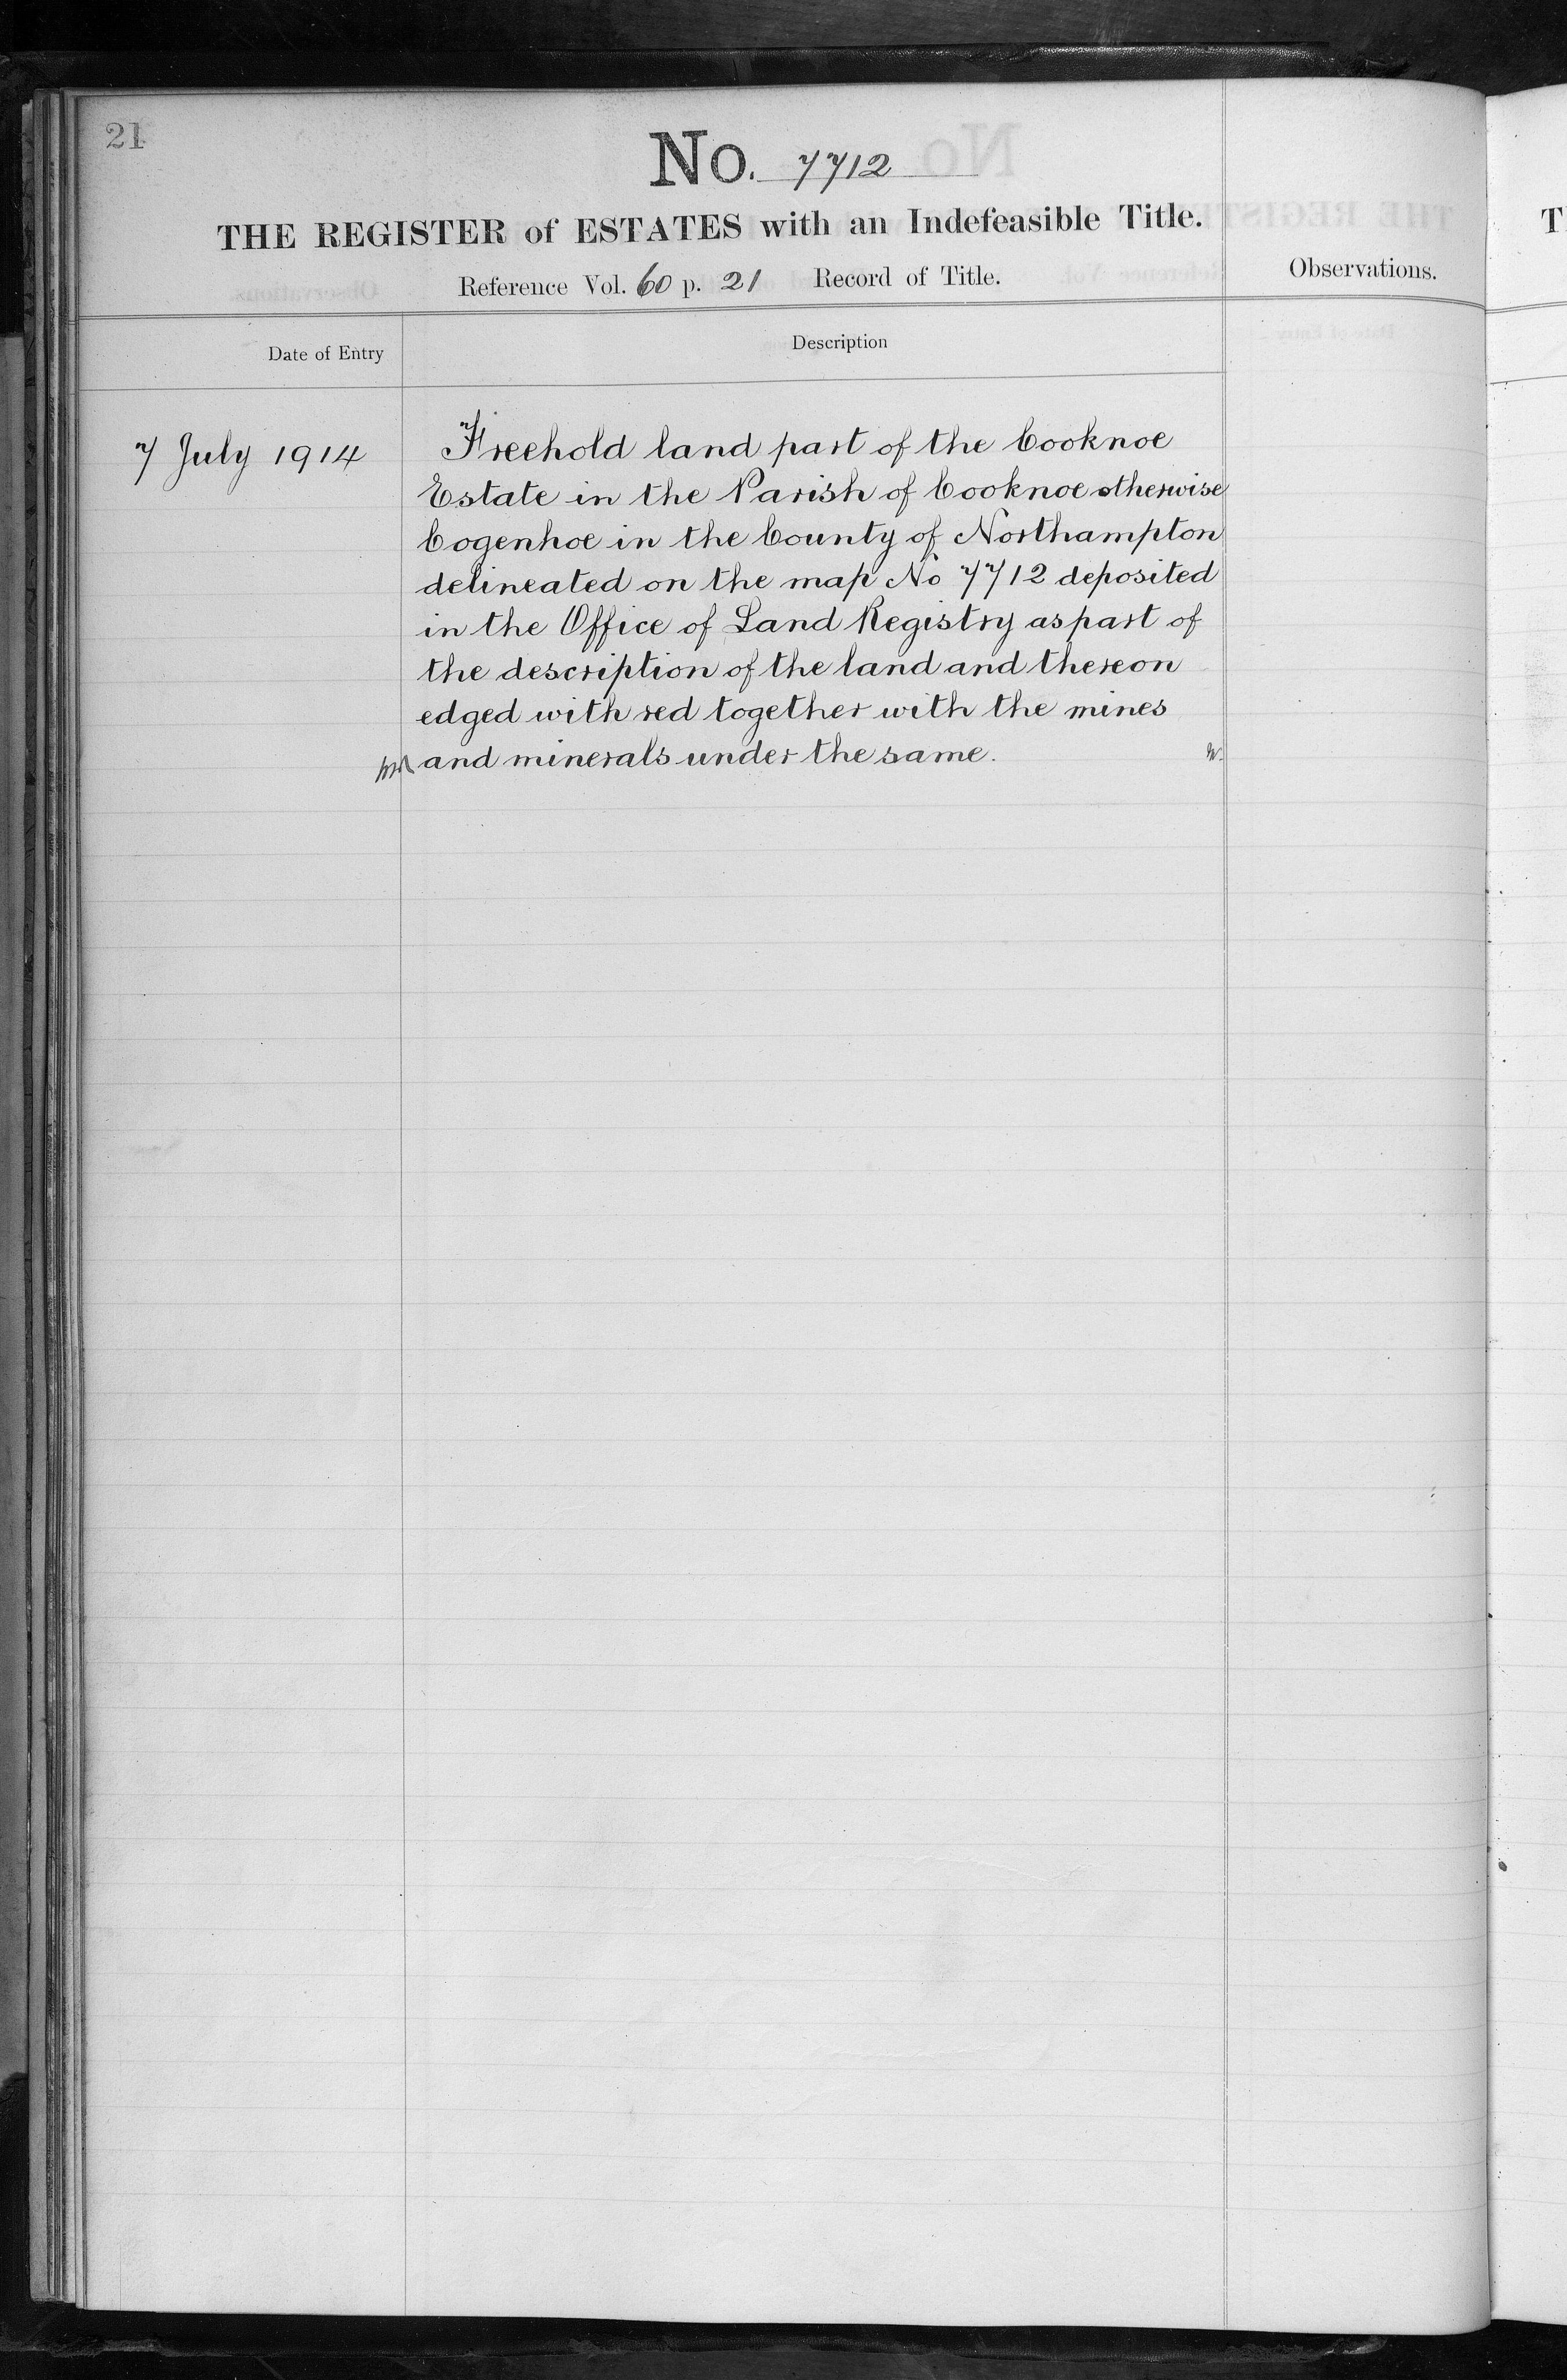 21
No. 7712
THE REGISTER of ESTATES with an Indefeasible Title.
Reference Vol. 60 p. 21 Record of Title.
Observations.
Date of Entry
Description
7 July 1914
Freehold land part of the Cooknoe
Estate in the Parish of Cooknoe otherwise
Cogenhoe in the County of Northampton
delineated on the map No 7712 deposited
in the Office of Land Registry as part of
the description of the land and thereon
edged with red together with the mines
and minerals under the same.